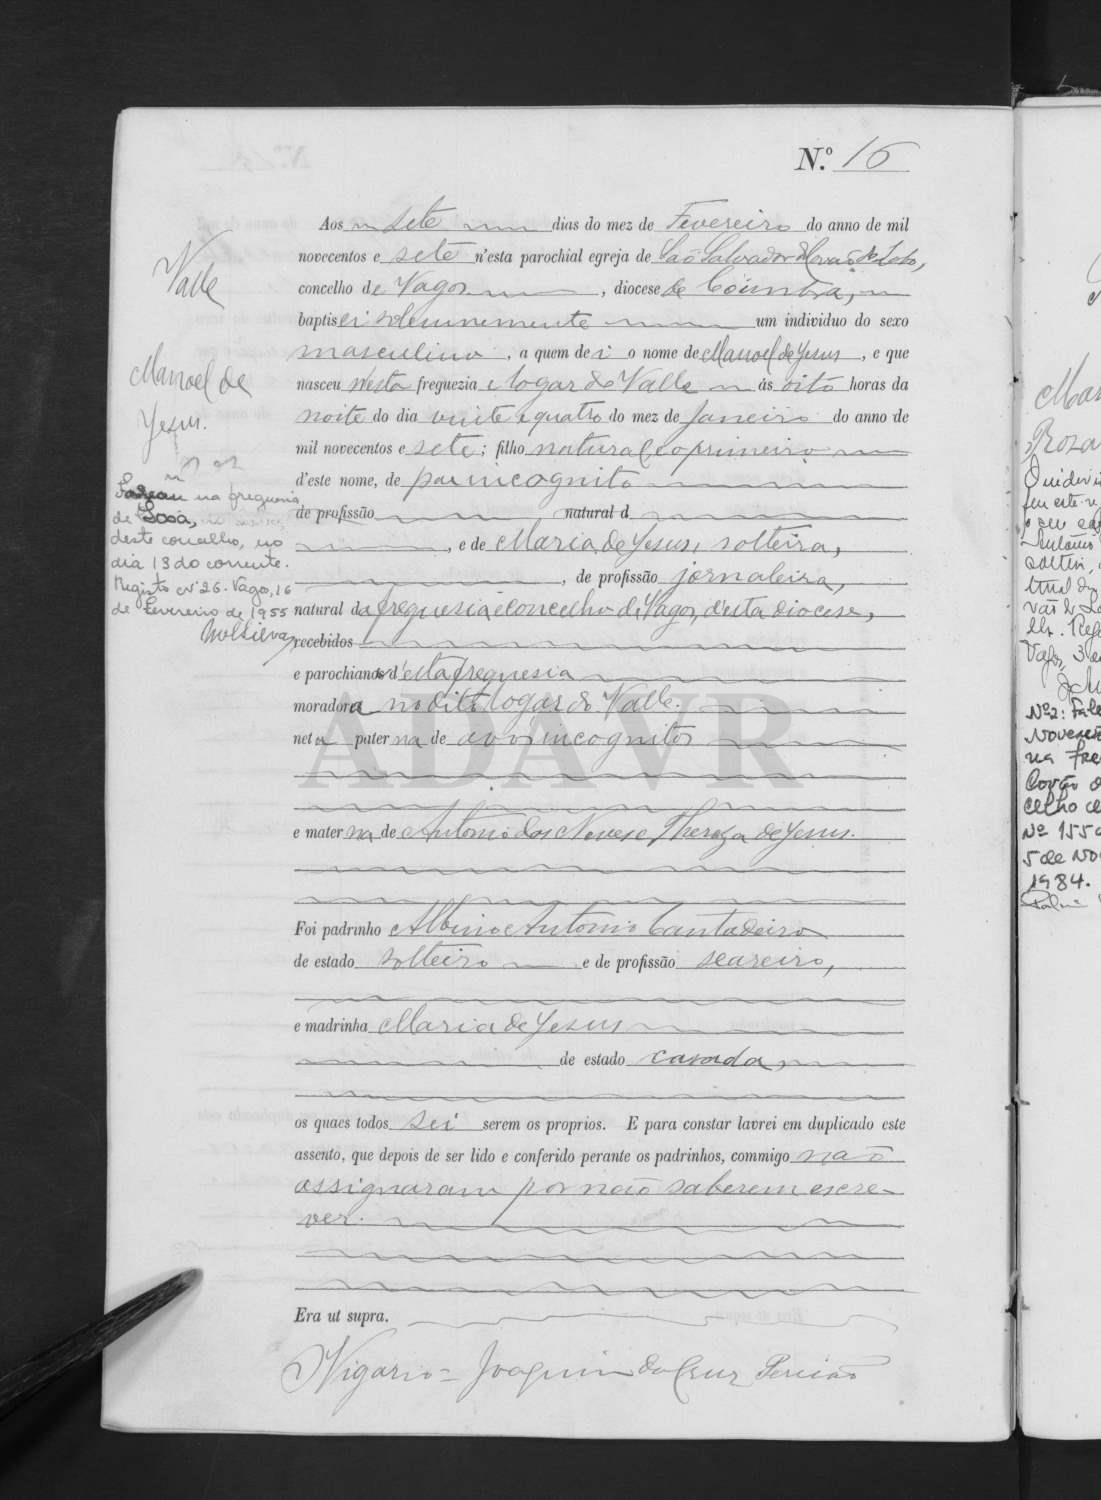 N.º 16
Aos sete dias do mez de Fevereiro do anno de mil
novecentos e sete n'esta parochial egreja de São Salvador de Covão do Lobo,
concelho de Vagos, diocese de Coimbra,
baptisei solemnemente um individuo do sexo
masculino, a quem dei o nome de Manoel de Jesus, e que
nasceu n'esta freguezia e logar do Valle ás oito horas da
noite do dia vinte e quatro do mez de Janeiro do anno de
mil novecentos e sete; filho natural, e o primeiro
d'este nome, de pai incognito
de profissão natural d
, e de Maria de Jesus, solteira,
, de profissão jornaleira,
natural da freguesia e concelho de Vagos, d'esta diocese,
recebidos
e parochianos d'esta freguesia
moradora no dito logar do Valle.
neto paterno de avos incognitos
e materno de Antonio dos Neves e Thereza de Jesus.
Foi padrinho Albino Antonio Cantadeiro
de estado solteiro e de profissão seareiro,
e madrinha Maria de Jesus
de estado casada,
os quaes todos sei serem os proprios. E para constar lavrei em duplicado este
assento, que depois de ser lido e conferido perante os padrinhos, commigo não
assignaram por não saberem escre-
ver.
Era ut supra.
O Vigario = Joaquim da Cruz
Valle
Manoel de
Jesus.
Nº 2
Casou na freguesia
de Sosa,
deste concelho, no
dia 13 do corrente.
Registo nº 26. Vagos, 16
de Fevereiro de 1955
ADAVR
Nº2: Fale
Novembro
na Fre
Covão d
celho
Nº 155
5 de No
1984.